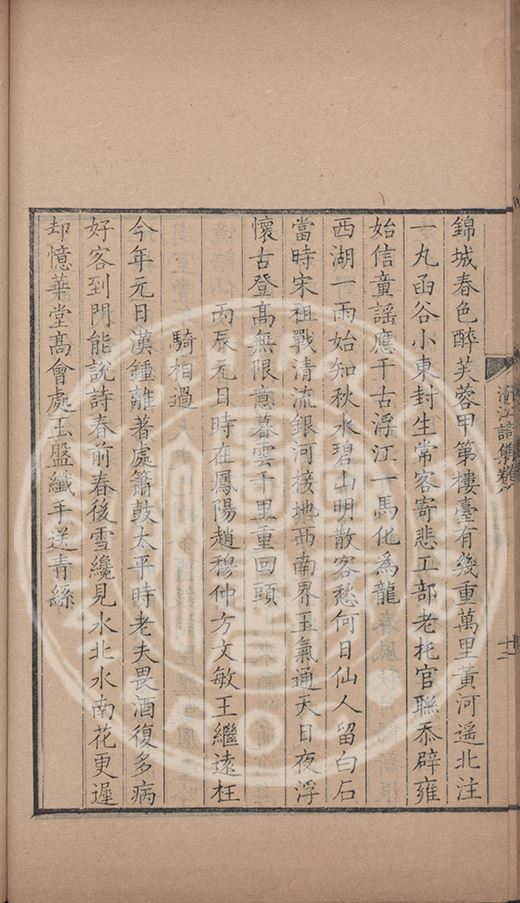 錦城春色醉芙蓉甲第樓臺有幾重萬里黃河遥北注
一丸函谷小東封生常客寄悲工部老托官聯忝辟雍
始信童謡應千古浮江一馬化爲龍
西湖一雨始知秋水碧山明散客愁何日仙人留白石
當時宋祖戰清流銀河接地西南界玉氣通天日夜浮
懷古登髙無限意暮雲千里重回頭
丙辰元日時在鳳陽趙穆仲方文敏王繼遠枉
騎相過
今年元日漢鍾離著處簫鼓太平時老夫畏酒復多病
好客到門能説詩春前春後雪纔見水北水南花更遲
却憶華堂髙會處玉盤纖手送青絲